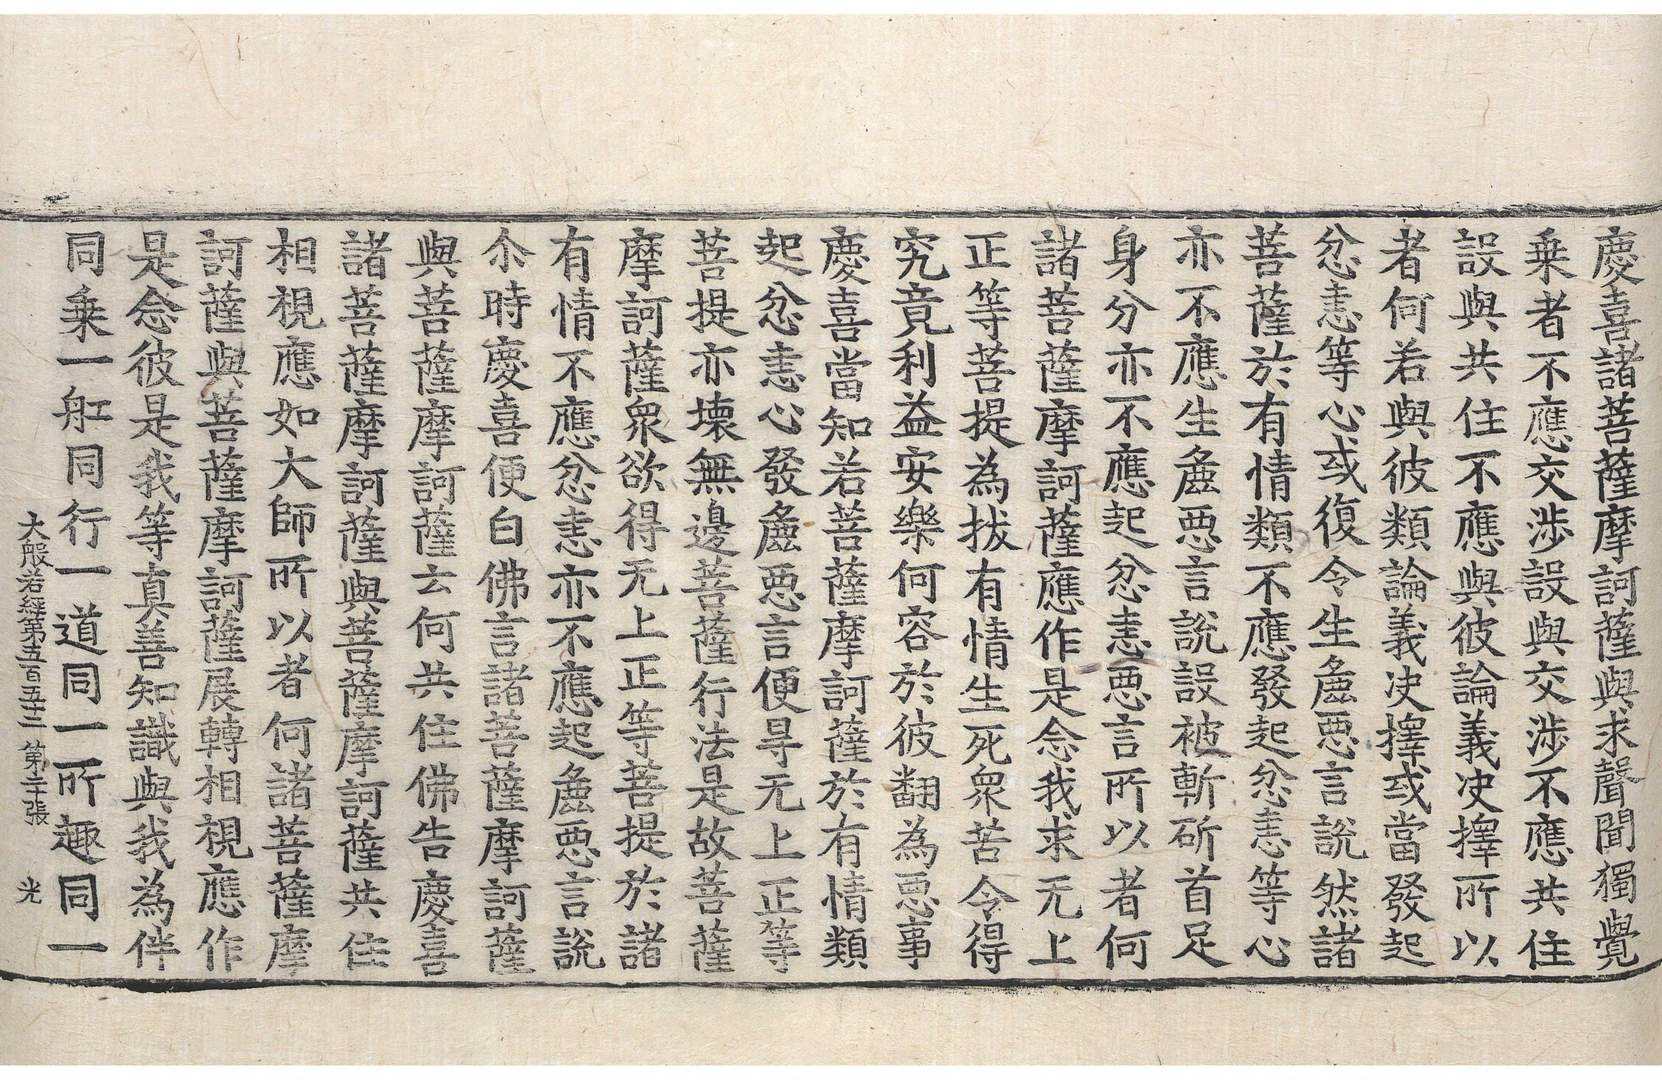 慶喜諸菩薩摩訶薩與求聲聞獨覺
乗者不應交涉設與交涉不應共住
設與共住不應與彼論義决擇所以
者何若與彼類論義决擇或當發起
忿恚等心或復令生麁惡言說然諸
菩薩於有情類不應發起忿恚等心
亦不應生麁惡言說設被斬斫首足
身分亦不應起忿恚惡言所以者何
諸菩薩摩訶薩應作是念我求无上
正等菩提為拔有情生死衆苦令得
究竟利益安樂何容於彼翻為惡事
慶喜當知若菩薩摩訶薩於有情類
起忿恚心發麁惡言便㝵无上正等
菩提亦壞無邊菩薩行法是故菩薩
摩訶薩衆欲得无上正等菩提於諸
有情不應忿恚亦不應起麁惡言說
尒時慶喜便白佛言諸菩薩摩訶薩
與菩薩摩訶薩云何共住佛告慶喜
諸菩薩摩訶薩與菩薩摩訶薩共住
相視應如大師所以者何諸菩薩摩
訶薩與菩薩摩訶薩展轉相視應作
是念彼是我等真善知識與我為伴
同乗一舩同行一道同一所趣同一
大般若經第五百五十二 第二十張 光